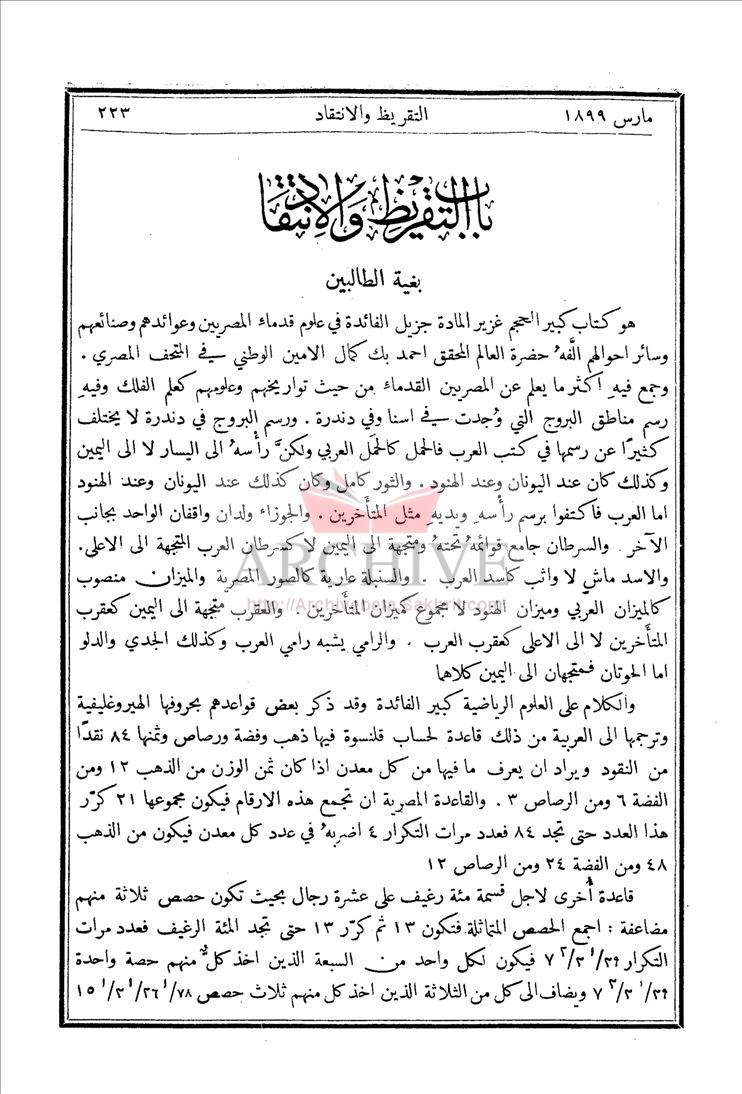 مارس ١٨٩٩ التقريظ والانتقاد ٢٢٣
باب التقريظ والانتقاد
بغية الطالبين
هو كتاب كبير الحجم غزير المادة جزيل الفائدة في علوم قدماء المصريين وعوائدهم وصنائعهم
وسائر احوالهم الَّفهُ حضرة العالم المحقق احمد بك كمال الامين الوطني في المتحف المصري .
وجمع فيهِ اكثر ما يعلم عن المصريين القدماء من حيث تواريخهم وعلومهم كعلم الفلك وفيهِ
رسم مناطق البروج التي وُجدت في اسنا وفي دندرة . ورسم البروج في دندرة لا يختلف
كثيرًا عن رسمها في كتب العرب فالحمل كالحَمَل العربي ولكنَّ رأْسهُ الى اليسار لا الى اليمين
وكذلك كان عند اليونان وعند الهنود . والثور كامل وكان كذلك عند اليونان وعند الهنود
اما العرب فاكتفوا برسم رأْسهِ ويديهِ مثل المتأَخرين . والجوزاء ولدان واقفان الواحد بجانب
الآخر . والسرطان جامع قوائمهُ تحتهُ ومتجهة الى اليمين لا كسرطان العرب المتجهة الى الاعلى.
والاسد ماشٍ لا واثب كاسد العرب . والسنبلة عارية كالصور المصرية والميزان منصوب
كالميزان العربي وميزان الهنود لا مجموع كميزان المتأَخرين . والعقرب متجهة الى اليمين كعقرب
المتأَخرين لا الى الاعلى كعقرب العرب . والرامي يشبه رامي العرب وكذلك الجدي والدلو
اما الحوتان فمتجهان الى اليمين كلاهما
والكلام على العلوم الرياضية كبير الفائدة وقد ذكر بعض قواعدهم بحروفها الهيروغليفية
وترجمها الى العربية من ذلك قاعدة لحساب قلنسوة فيها ذهب وفضة ورصاص وثمنها ٨٤ نقدًا
من النقود ويراد ان يعرف ما فيها من كل معدن اذا كان ثمن الوزن من الذهب ١٢ ومن
الفضة ٦ ومن الرصاص ٣ . والقاعدة المصرية ان تجمع هذه الارقام فيكون مجموعها ٢١ كرّر
هذا العدد حتى تجد ٨٤ فعدد مرات التكرار ٤ اضربهُ في عدد كل معدن فيكون من الذهب
٤٨ ومن الفضة ٢٤ ومن الرصاص ١٢
قاعدة أُخرى لاجل قسمة مئة رغيف على عشرة رجال بحيث تكون حصص ثلاثة منهم
مضاعفة : اجمع الحصص المتماثلة فتكون ١٣ ثم كرّر ١٣ حتى تجد المئة الرغيف فعدد مرات
التكرار ١/٣٩ ٢/٣ ٧ فيكون لكل واحد من السبعة الذين اخذ كلٌّ منهم حصة واحدة
١/٣٩ ٢/٣ ٧ ويضاف الى كل من الثلاثة الذين اخذ كل منهم ثلاث حصص ١/٧٨ ١/٢٦ ١/٣ ١٥
ARCHIVE
http://Archivebeta.Sakhrit.com